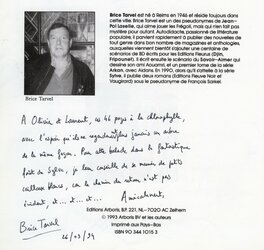 Brice Tarvel est né à Reims en 1946 et réside toujours dans
cette ville. Brice Tarvel est un des pseudonymes de Jean-
Pol Laselle, qui aime jouer les Frégoli, mais qui n'en fait pas
mystère pour autant. Autodidacte, passionné de littérature
populaire, il parvient rapidement à publier des nouvelles de
tout genre dans bon nombre de magazines et anthologies,
auxquelles viennent bientôt s'ajouter une centaine de
scénarios de BD pour les éditions Fleurus (Djin,
Fripounet). Il écrit ensuite le scénario du Savoir-Aimer qui
dessine son ami Aouamri, et un premier tome de la série
Arkan, avec Aidans. En 1990, alors qu'il s'attelle à la série
Sylve, il publie deux romans (Editions Fleuve Noir et
Vaugirard) sous le pseudonyme de François Sarkel.
Brice Tarvel
A Olivia et Laurent, ces 46 pages à la chlorophylle,
avec l'espoir qu'ils ne regarderont plus jamais un arbre
de la même façon. Pour cette balade dans la fantastique
forêt de Sylve, je leur conseille de se munir de petits
cailloux blancs, car le chemin du retour n'est pas
évident, et... et... et... Amicalement,
Brice Tarvel
26/03/94
Editions Arboris, B.P. 221, NL-7020 AC Zelhem
© 1993 Arboris BV et les auteurs
Imprimé aux Pays-Bas
ISBN 90 344 1015 3